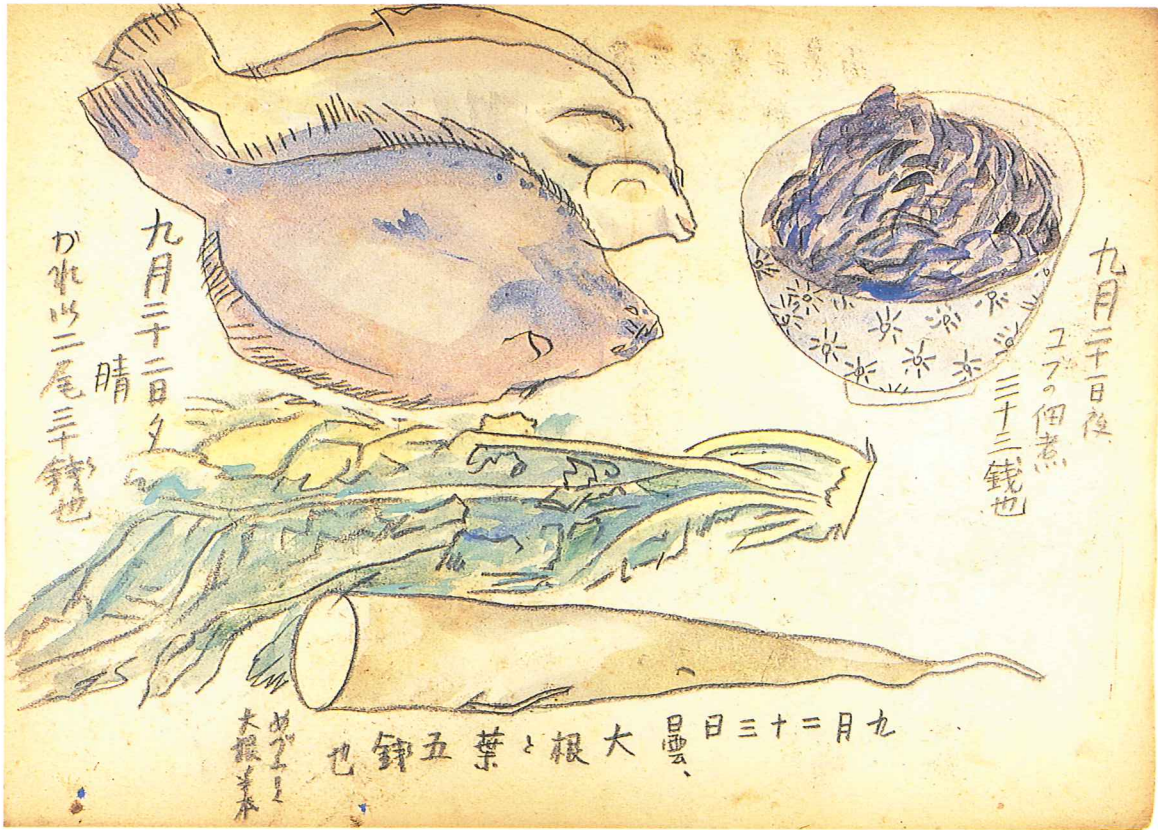 九月二十一日夜
コブの佃煮
三十二銭也
九月二十二日夕
晴
かれい二尾三十銭也
九月二十三日曇、大根と葉五銭也
大根半本